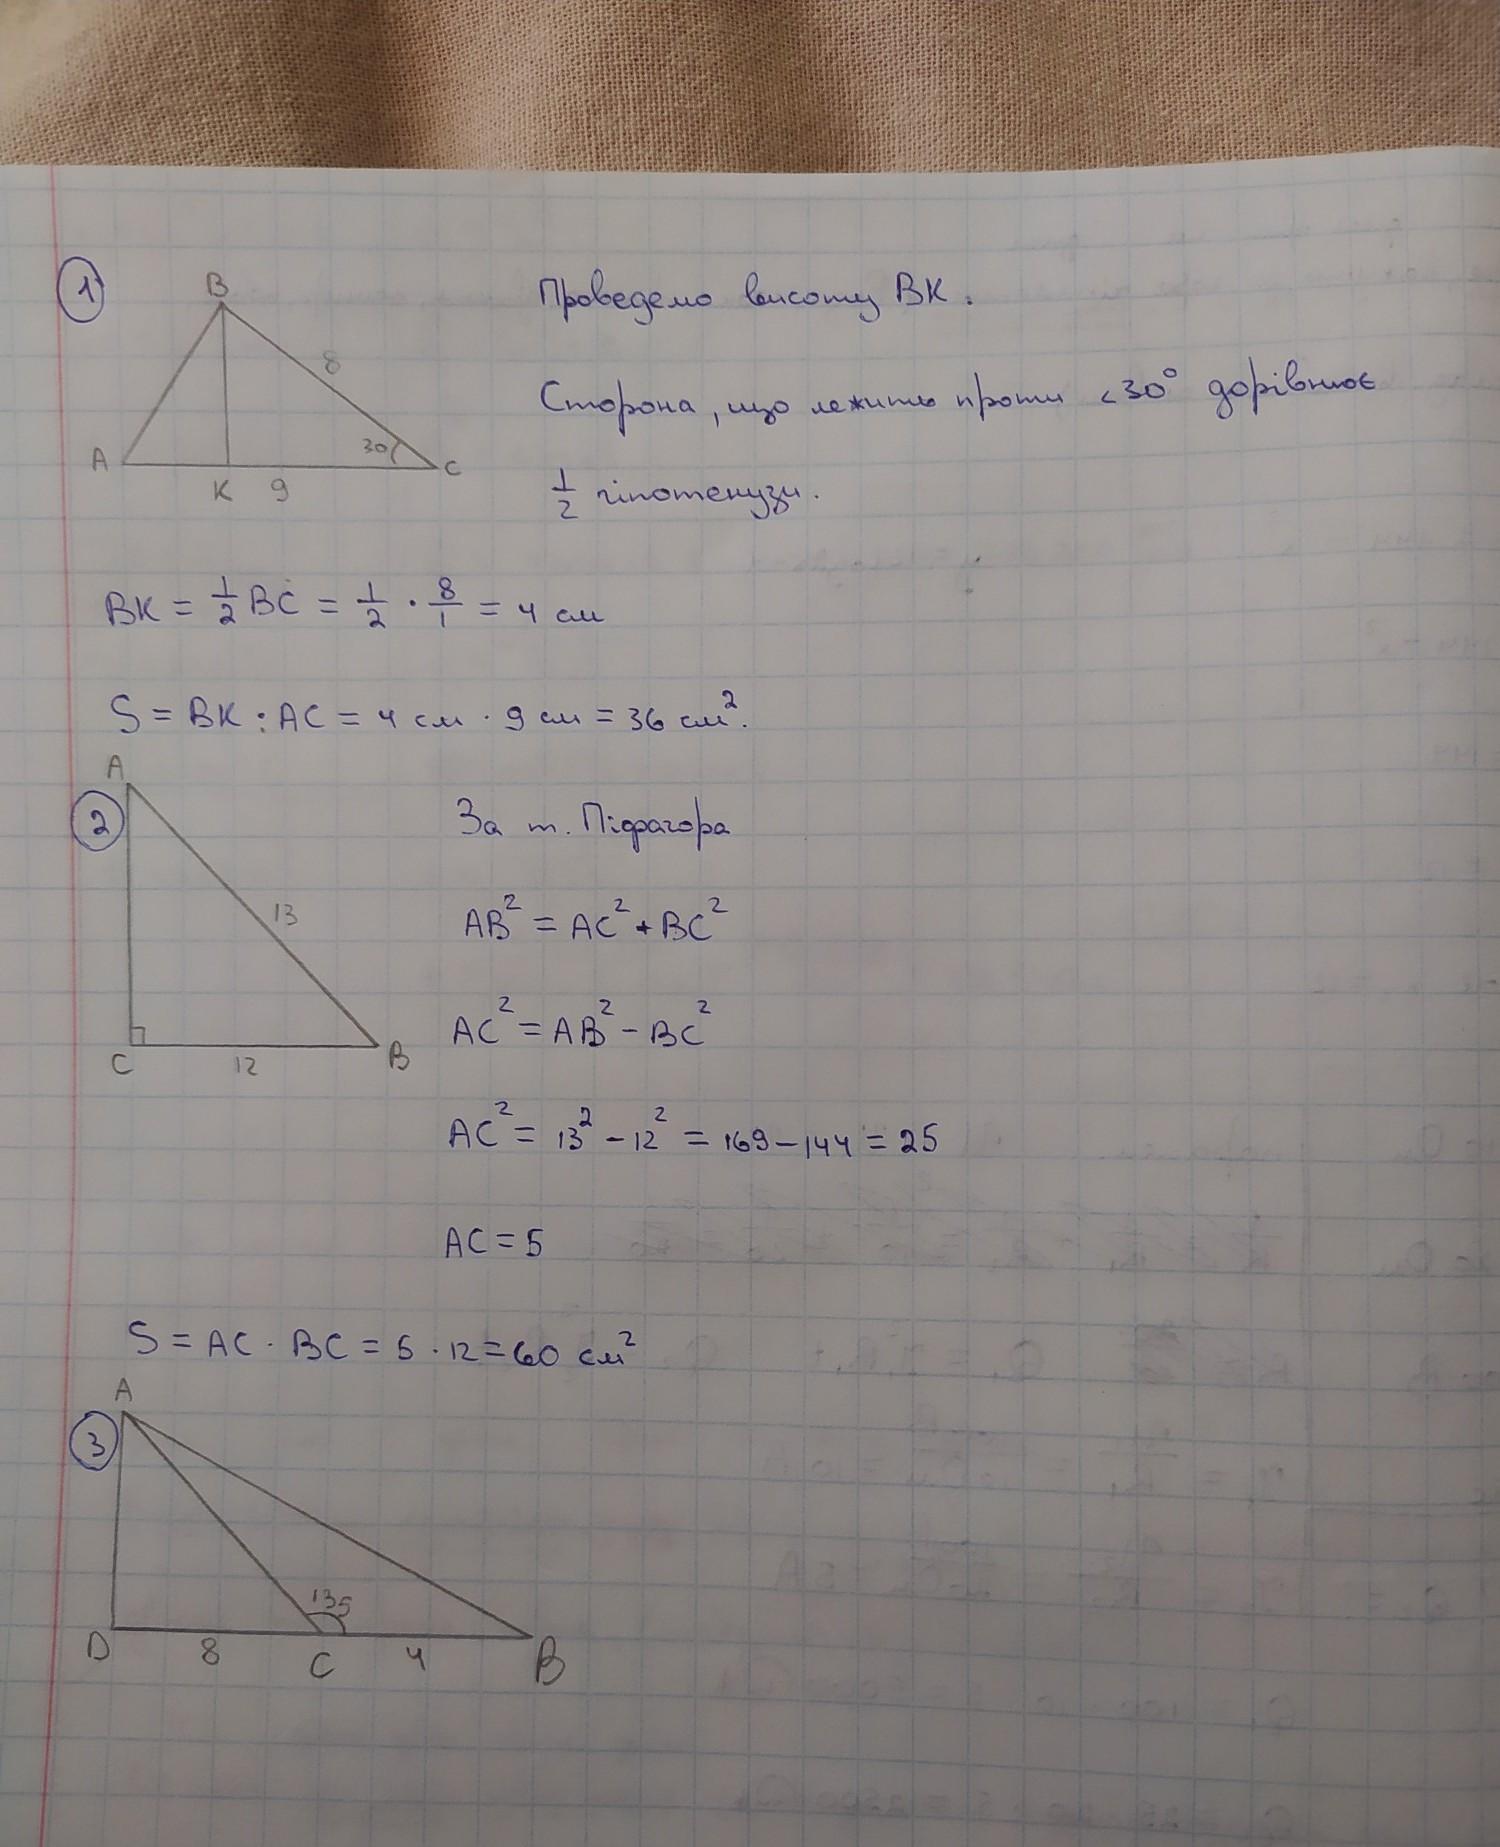 1
B
8
30
A
K
9
C
Проведемо висоту BK.
Сторона, що лежить проти <30° дорівнює
1/2 гіпотенузи.
BK = 1/2 BC = 1/2 · 8/1 = 4 см
S = BK : AC = 4 см · 9 см = 36 см².
2
A
13
C
12
B
За т. Піфагора
AB² = AC² + BC²
AC² = AB² - BC²
AC² = 13² - 12² = 169 - 144 = 25
AC = 5
S = AC · BC = 5 · 12 = 60 см²
3
A
135
D
8
C
4
B